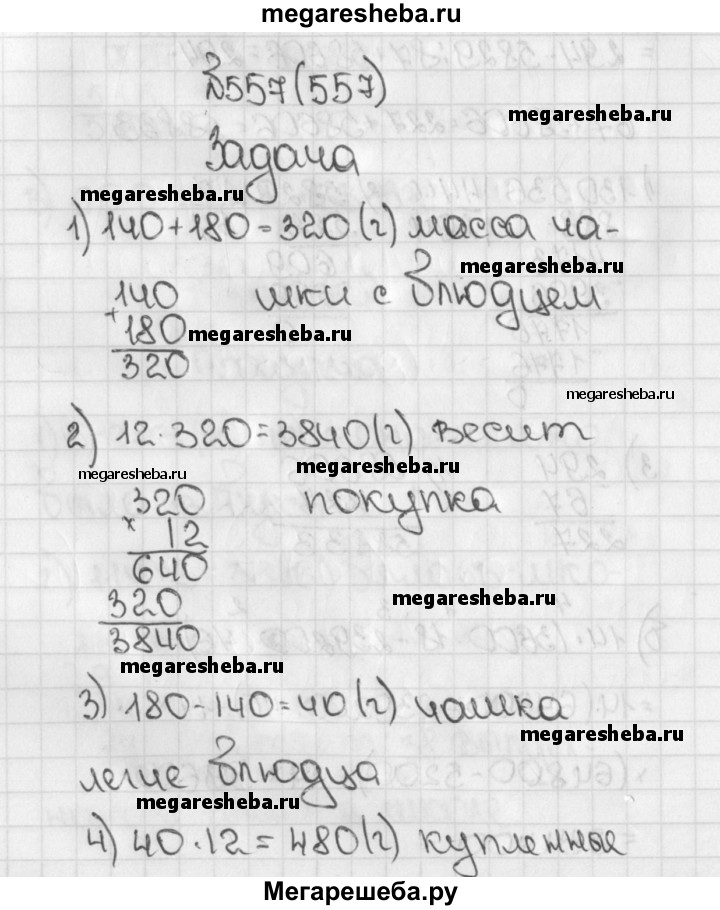 megaresheba.ru
№557(557)
megaresheba.ru
Задача
megaresheba.ru
1) 140+180=320(г) масса ча-
megaresheba.ru
140 шки с блюдцем
+180
megaresheba.ru
320
megaresheba.ru
2) 12·320=3840(г) весит
megaresheba.ru
megaresheba.ru
320 покупка
× 12
640
320
megaresheba.ru
3840
megaresheba.ru
3) 180-140=40(г) чашка
megaresheba.ru
легче блюдца
megaresheba.ru
4) 40·12=480(г) купленные
Мегарешеба.ру